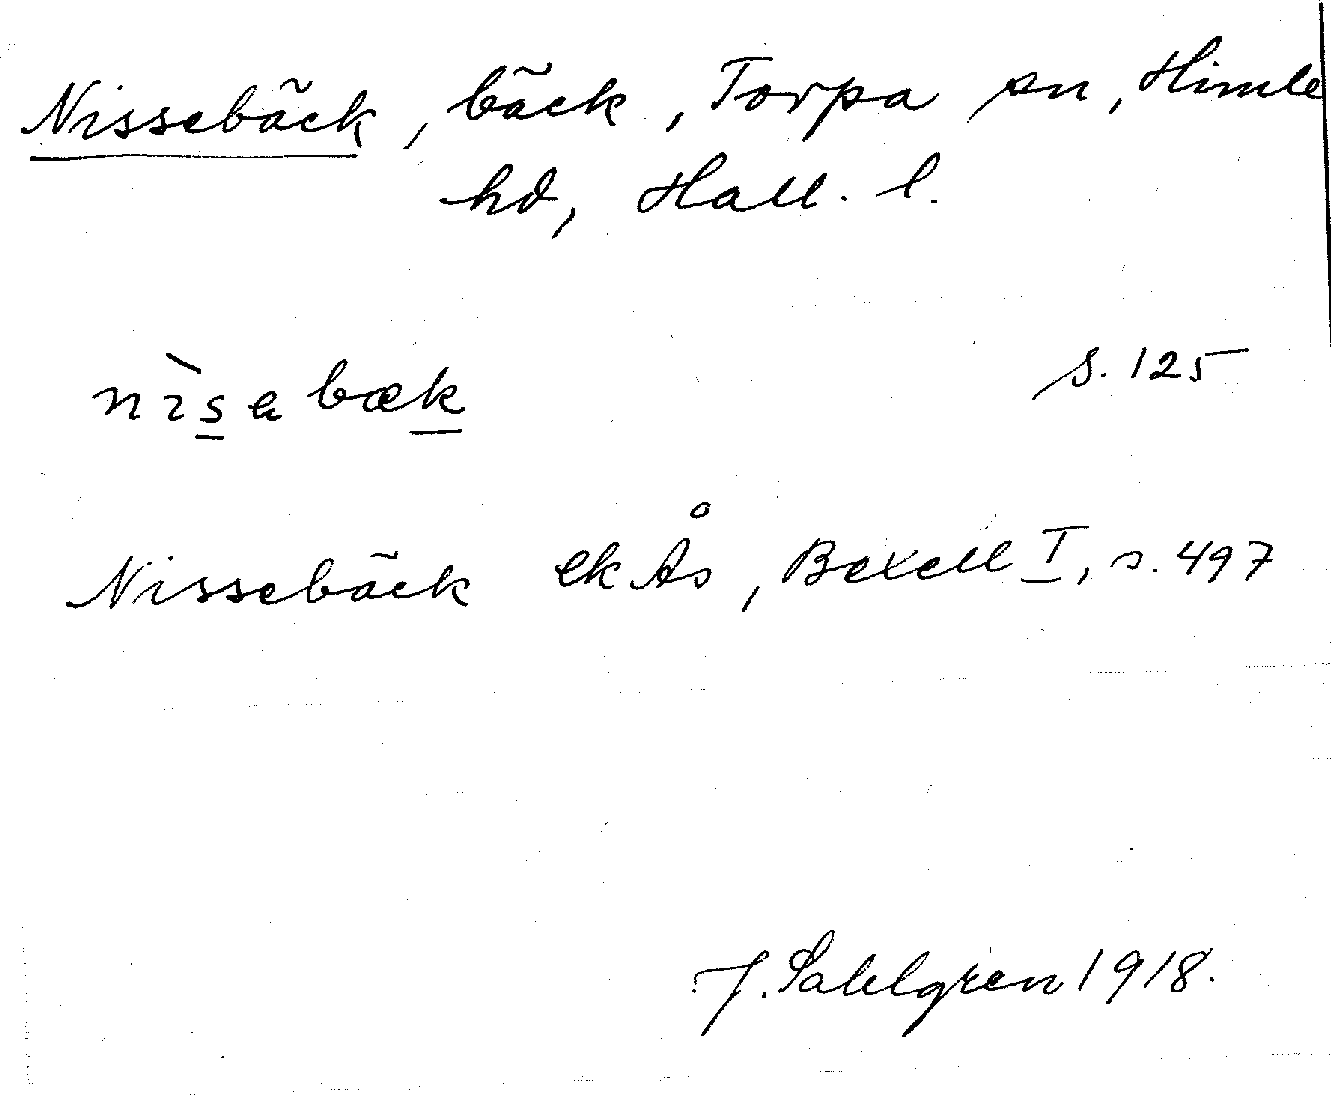 Nissebäck, bäck, Torpa sn, Himle
hd, Hall. l.
nìsabæk s. 125
Nissebäck ek Ås, Bexell I, s. 497
J. Sahlgren 1918.